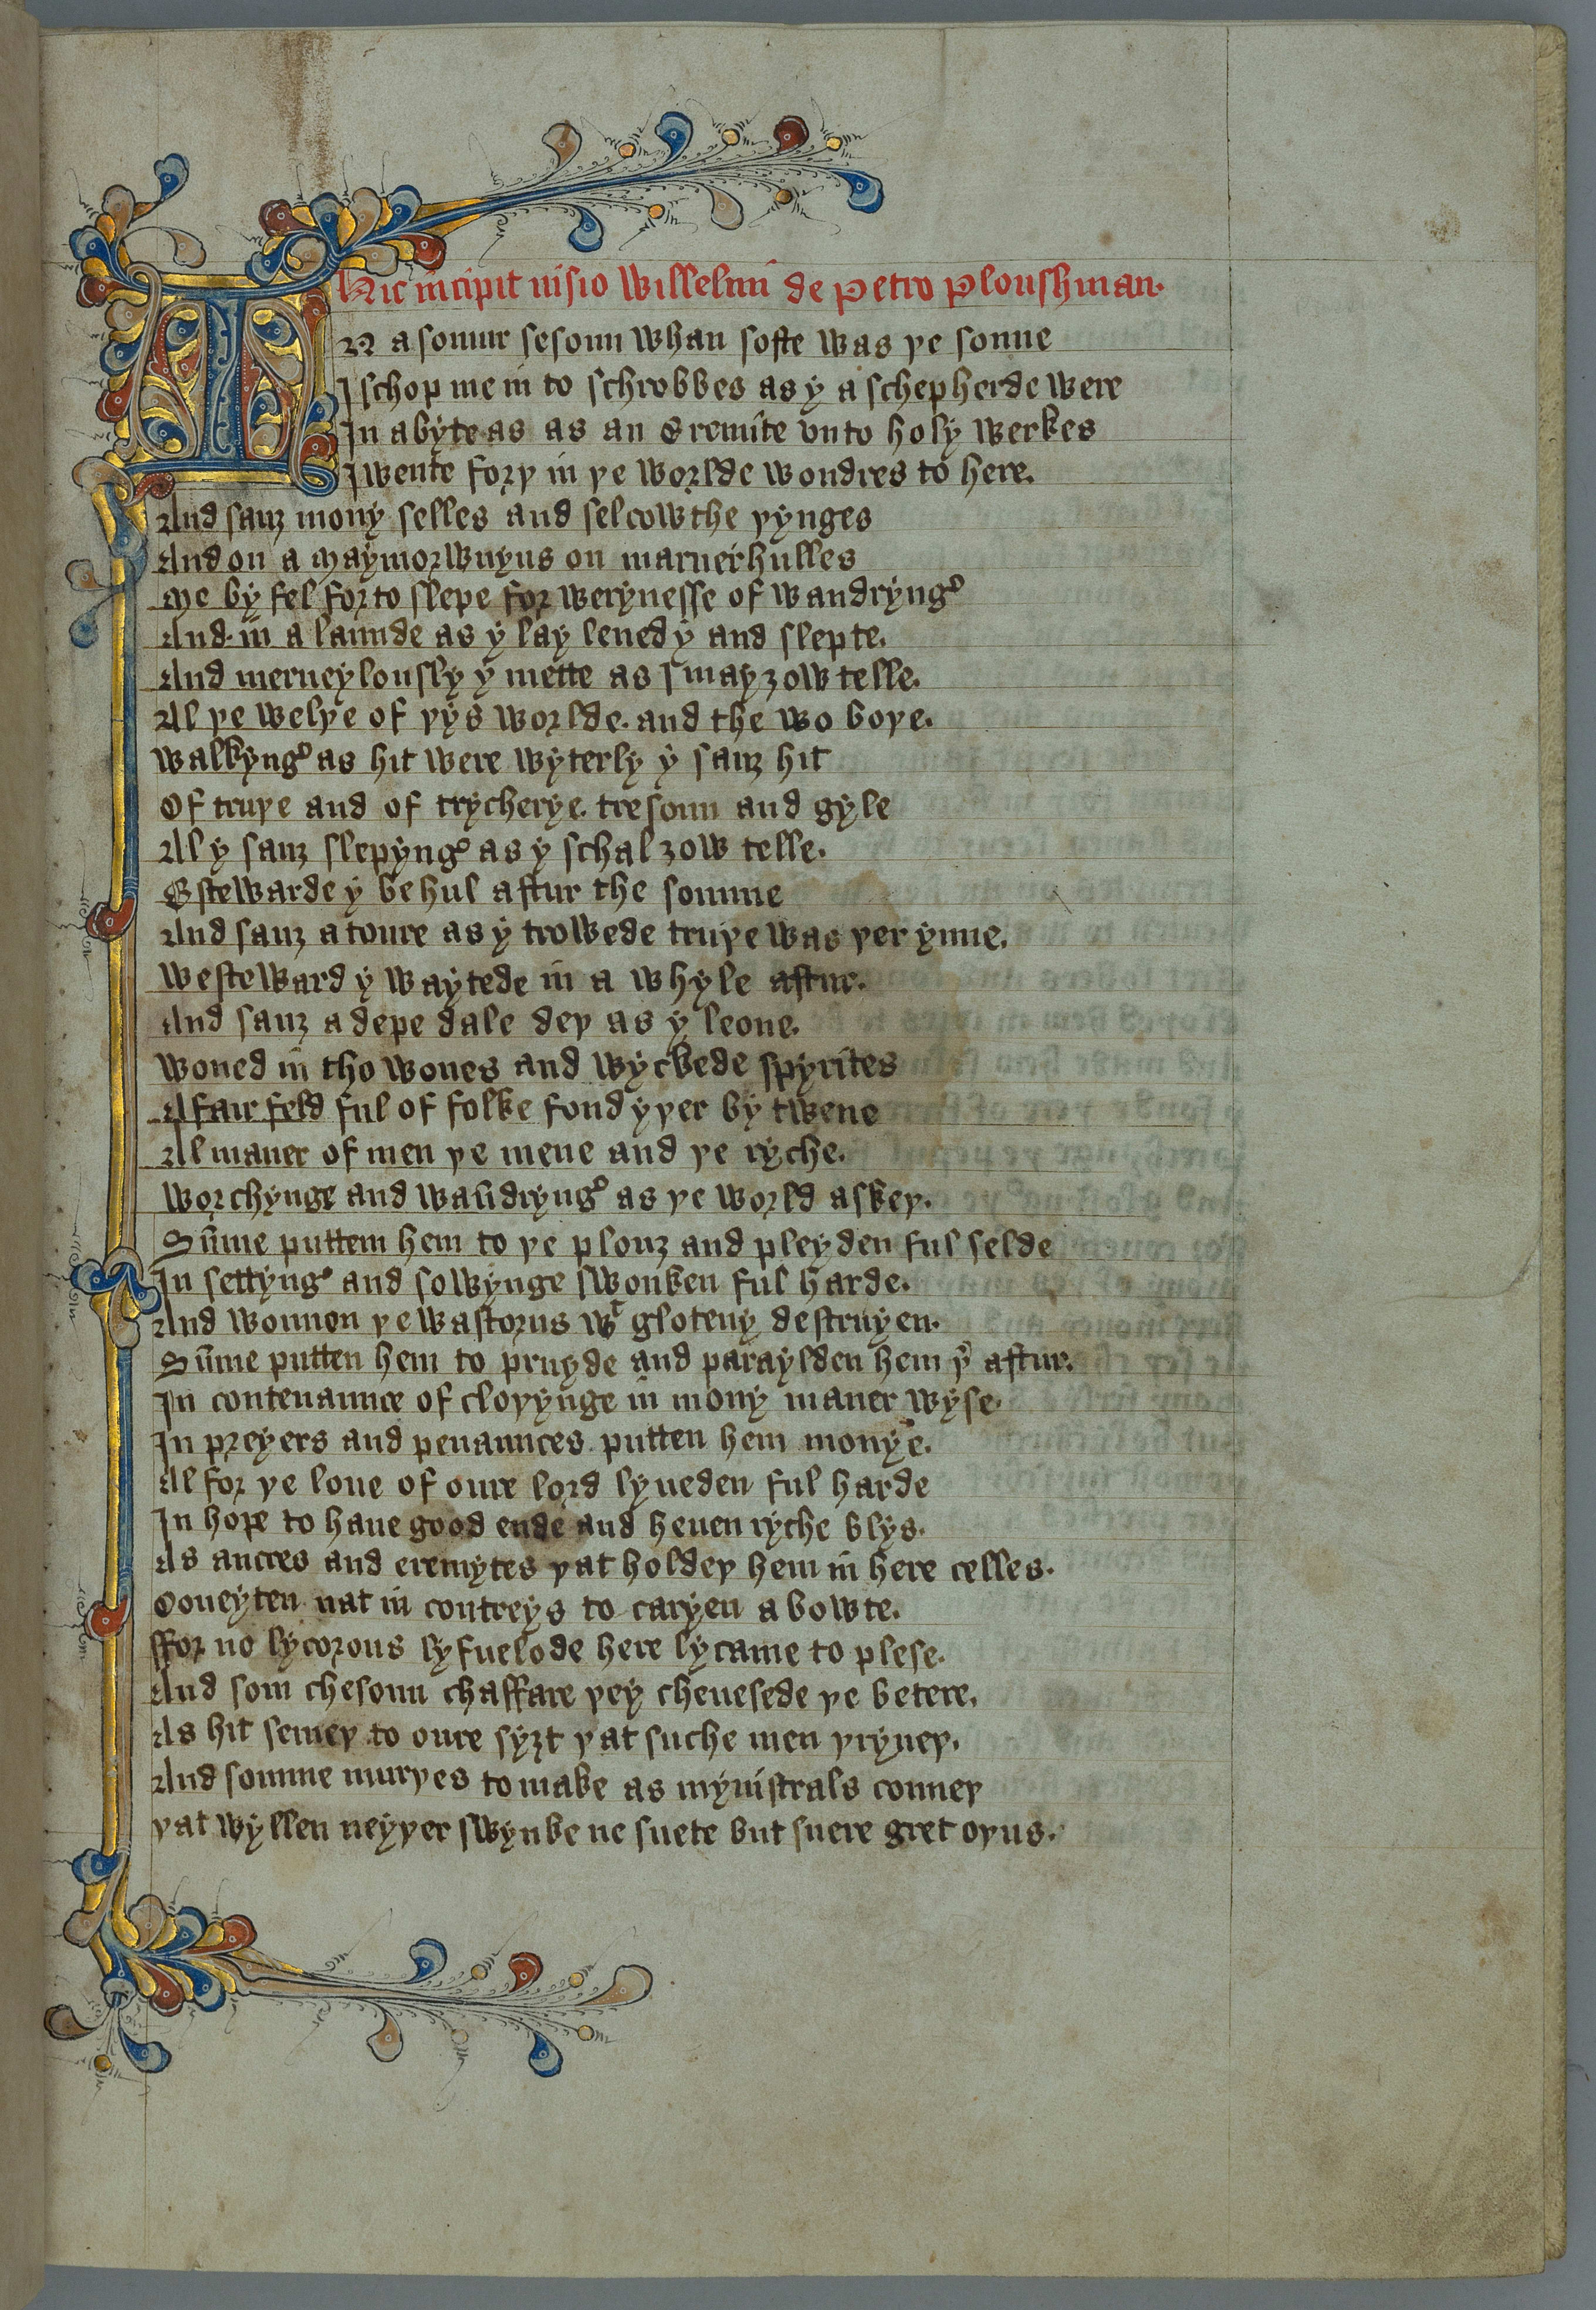 Hic incipit uisio Willelmi de Petro Ploushman.
IN a somur sesoun whan softe was þe sonne
I schop me in to schrobbes as y a schepherde were
In abyte as as an Eremite vnto holy werkes
I wente forþ in þe worlde wondres to here.
And sauȝ mony selles and selcowthe þynges
And on a May morwnyus on maruerhulles
Me by fel for to slepe for werynesse of wandryng
And in a launde as y lay lened y and slepte.
And merueylously y mette as I may ȝow telle.
Al þe welþe of þys worlde. and the wo boþe.
Walkyng as hit were wyterly y sauȝ hit
Of truþe and of trycherye. tresoun and gyle
Al y sauȝ slepyng as y schal ȝow telle.
Estewarde y behul aftur the sonnne
And sauȝ a toure as y trowede truþe was þer ynne.
Westeward y waytede in a whyle aftur.
And sauȝ a depe dale deþ as y leone.
Woned in tho wones and wyckede spyrites
A fair feld ful of folke fond y þer by twene
Al maner of men þe mene and þe ryche.
Worchynge and wandryng as þe world askeþ.
Sūme puttem hem to þe plouȝ and pleyden ful selde
In settyng and sowynge swonken ful harde.
And wonnon þe wastorus wt gloteny destruyen.
Sūme putten hem to pruyde and paraylden hem þer aftur.
In contenaunce of cloþynge in mony maner wyse.
In preyers and penaunces putten hem monye.
Al for þe loue of oure lord lyueden ful harde
In hope to haue good ende and heuen ryche blys.
As ancres and eremytes þat holdeþ hem in here celles.
Coueyten nat in contreys to caryen a bowte.
ffor no lycorous lyfuelode here lycame to plese.
And som chesoun chaffare þey cheuesede þe betere.
As hit semeþ to oure syȝt þat suche men þryueþ.
And somme murþes to make as mynistrals conneþ
þat wyllen neyþer swynke ne suete but suere gret oþus.